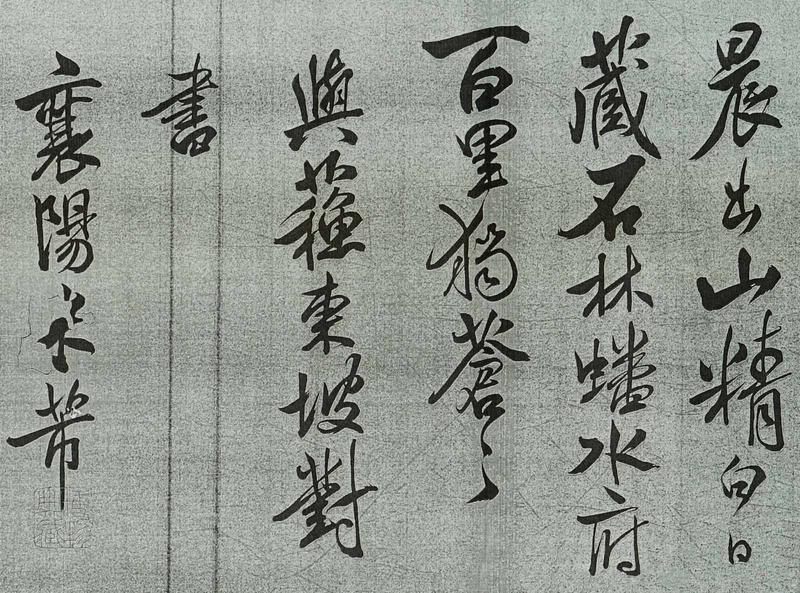 晨出山精白日
藏石林蟠水府
百里獨蒼〻
與蘓東坡對
書
襄陽米芾